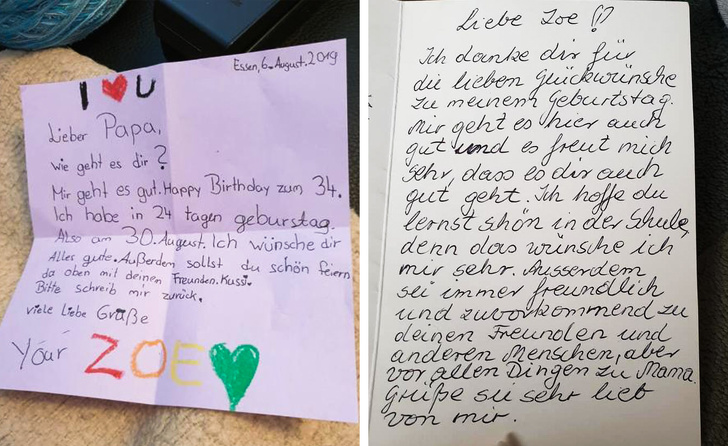 Essen, 6. August. 2019
I ♥ U
Lieber Papa,
wie geht es dir?
Mir geht es gut. Happy Birthday zum 34.
Ich habe in 24 tagen geburstag.
Also am 30. August. Ich wünsche dir
Alles gute. Außerdem sollst du schön feiern
da oben mit deinen Freunden. Kussi.
Bitte schreib mir zurück.
viele Liebe Grüße
Your ZOE ♥
Liebe Zoe !!
Ich danke dir für
die lieben Glückwünsche
zu meinem Geburtstag.
Mir geht es hier auch
gut und es freut mich
sehr, dass es dir auch
gut geht. Ich hoffe du
lernst schön in der Schule,
denn das wünsche ich
mir sehr. Ausserdem
sei immer freundlich
und zuvorkommend zu
deinen Freunden und
anderen Menschen, aber
vor allen Dingen zu Mama.
Grüße sie sehr lieb
von mir.